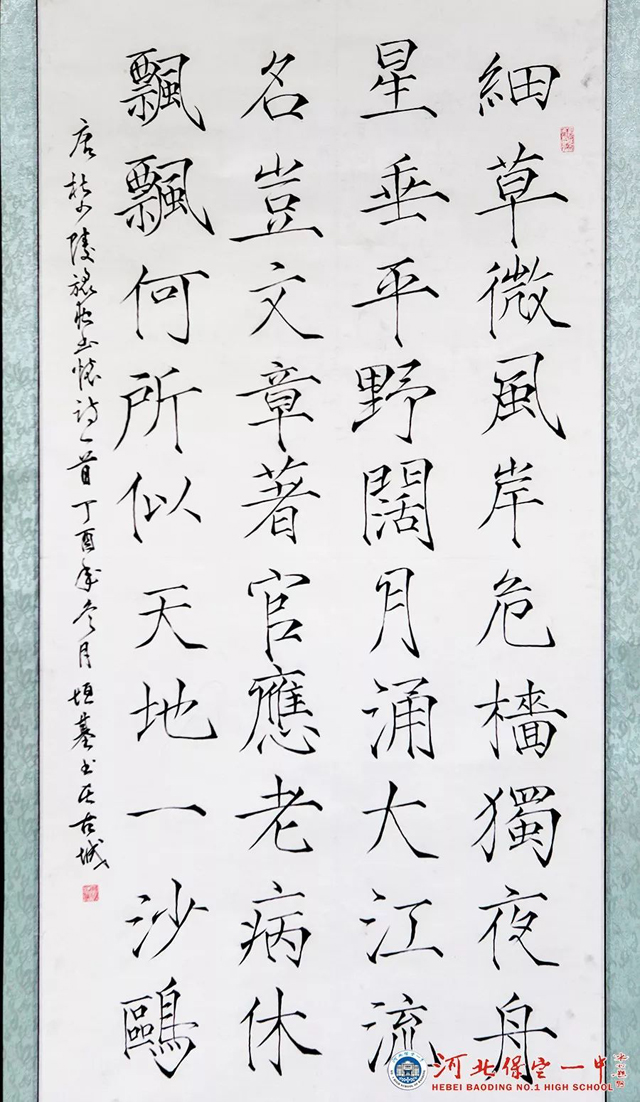 細草微風岸危檣獨夜舟
星垂平野闊月涌大江流
名豈文章著官應老病休
飄飄何所似天地一沙鷗
唐杜少陵旅夜書懷詩一首丁酉年冬月垣基書於古城
河北保定一中
HEBEI BAODING NO.1 HIGH SCHOOL